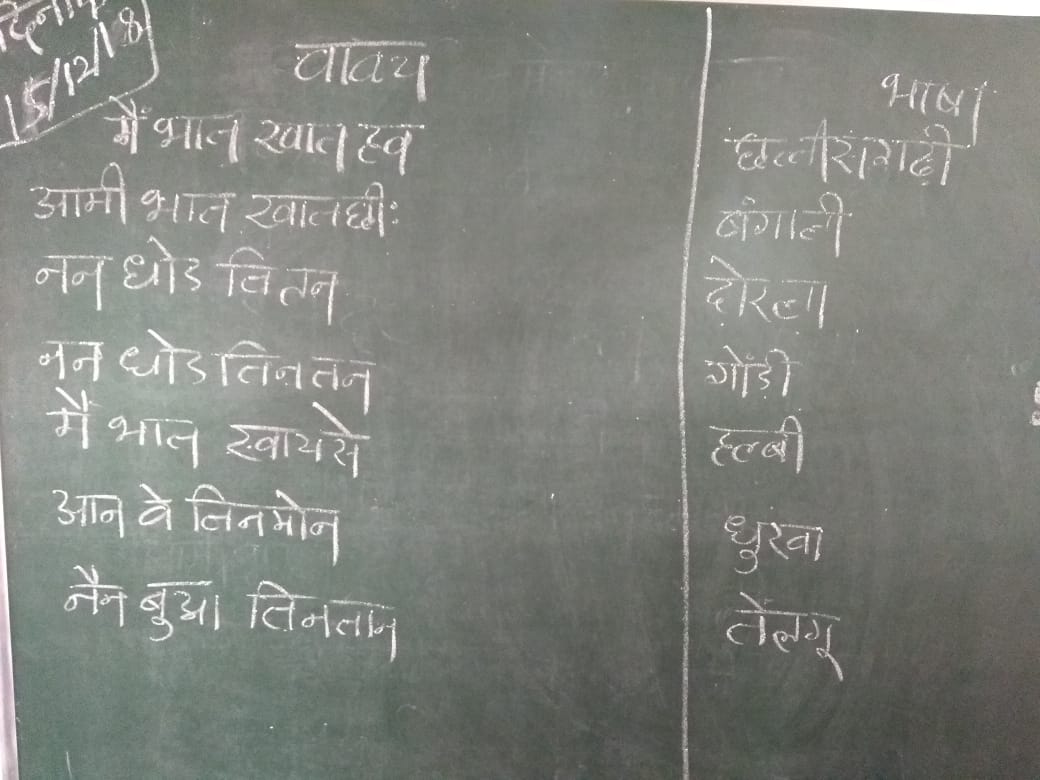 दिनांक
15/12/18
वाक्य भाषा
मैं भात खात हव छत्तीसगढ़ी
आमी भात खातछीः बंगाली
नन धोड तितन दोरला
नन धोड तिनतन गोंड़ी
मैं भात खायसे हल्बी
आन वे तिनमोन धुरवा
नैन बुआ तिनतान तेलगू